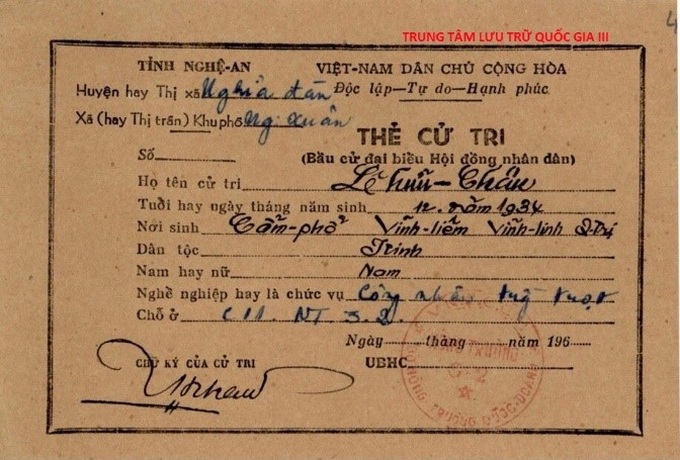 TRUNG TÂM LƯU TRỮ QUỐC GIA III
4
TỈNH NGHỆ-AN
Huyện hay Thị xã Nghĩa đàn
Xã (hay Thị trấn) Khu phố Ng. Xuân
VIỆT-NAM DÂN CHỦ CỘNG HÒA
Độc lập—Tự do—Hạnh phúc
THẺ CỬ TRI
Số
(Bầu cử đại biểu Hội đồng nhân dân)
Họ tên cử tri Lê hữu-Châu
Tuổi hay ngày tháng năm sinh 12. năm 1934
Nơi sinh Cẩm-phổ Vĩnh-liêm Vĩnh-linh Q-Trị
Dân tộc Kinh
Nam hay nữ Nam
Nghề nghiệp hay là chức vụ Công nhân trồng trọt
Chỗ ở C11. NT 3.2.
Ngày tháng năm 196
CHỮ KÝ CỦA CỬ TRI
UBHC